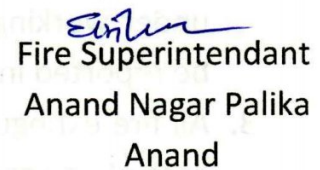 Fire Superintendant
Anand Nagar Palika
Anand